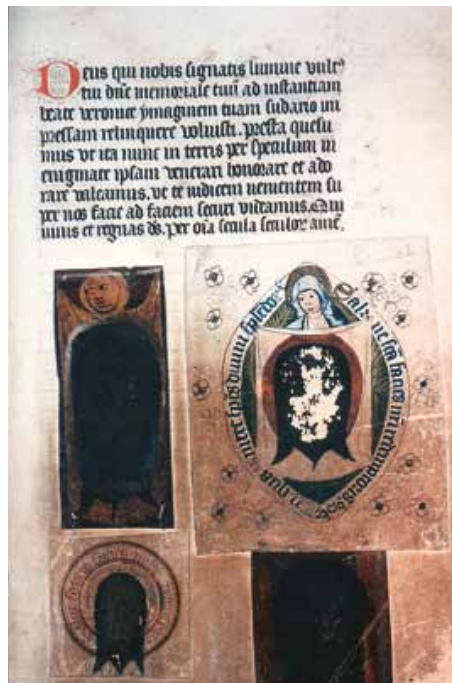 Deus qui nobis signatis lumine vult9
tui dñe memoriale tuũ ad instantiam
beate veronice ymaginem tuam sudario im
pressam relinquere voluisti. presta quesu
mus vt ita nunc in terris per speculum in
enigmate ipsam venerari honorare et ado
rare valeamus. vt te iudicem venientem su
per nos facie ad faciem securi videamus. Qui
viuis et regnas ds. per oĩa secula seculor amẽ.
Salue sc̃a facies nr̃i redemptoris
in qua nitet sp̃es diuini splendo